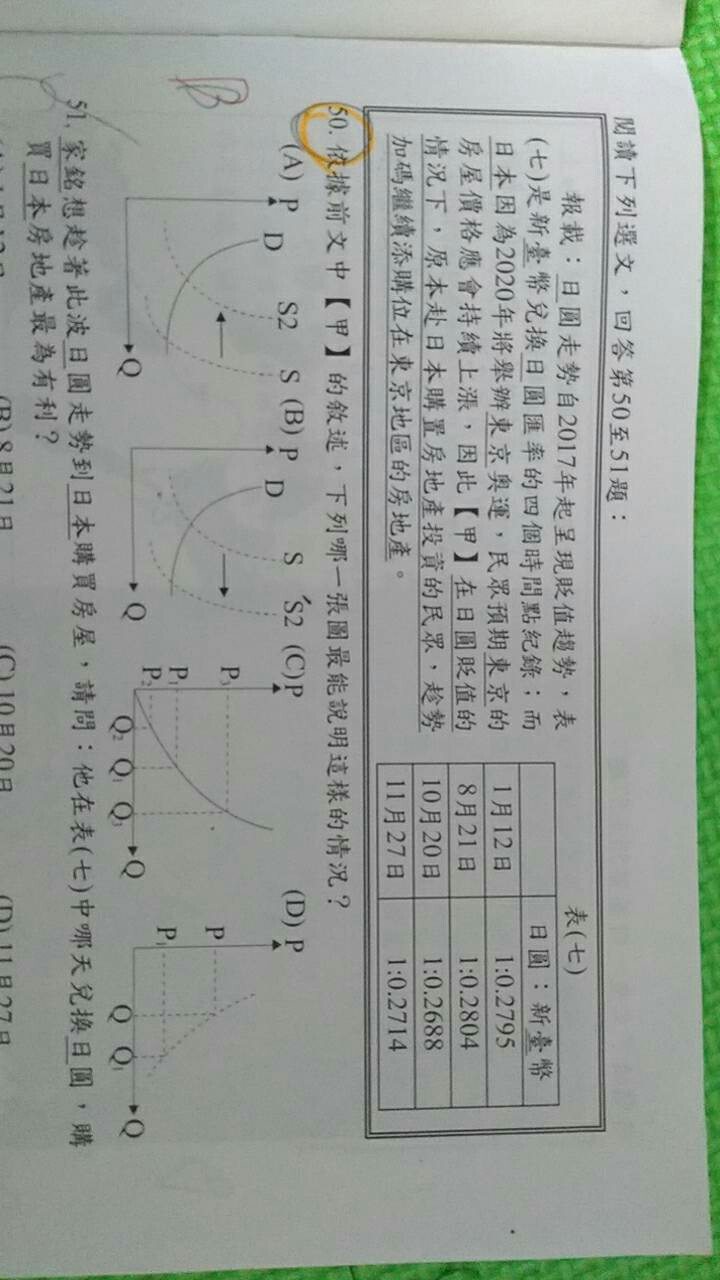 閱讀下列選文，回答第50至51題：
報載：日圓走勢自2017年起呈現貶值趨勢，表
(七)是新臺幣兌換日圓匯率的四個時間點紀錄；而
日本因為2020年將舉辦東京奧運，民眾預期東京的
房屋價格應會持續上漲，因此【甲】在日圓貶值的
情況下，原本赴日本購置房地產投資的民眾，趁勢
加碼繼續添購位在東京地區的房地產。
表(七)
日圓：新臺幣
1月12日 1:0.2795
8月21日 1:0.2804
10月20日 1:0.2688
11月27日 1:0.2714
B
50. 依據前文中【甲】的敘述，下列哪一張圖最能說明這樣的情況？
(A) P D S2 S Q
(B) P D S S2 Q
(C) P P3 P1 P2 Q2 Q1 Q3 Q
(D) P P P1 Q Q1 Q
51. 家銘想趁著此波日圓走勢到日本購買房屋，請問：他在表(七)中哪天兌換日圓，購
買日本房地產最為有利？
(A) 1月12日 (B) 8月21日 (C) 10月20日 (D) 11月27日